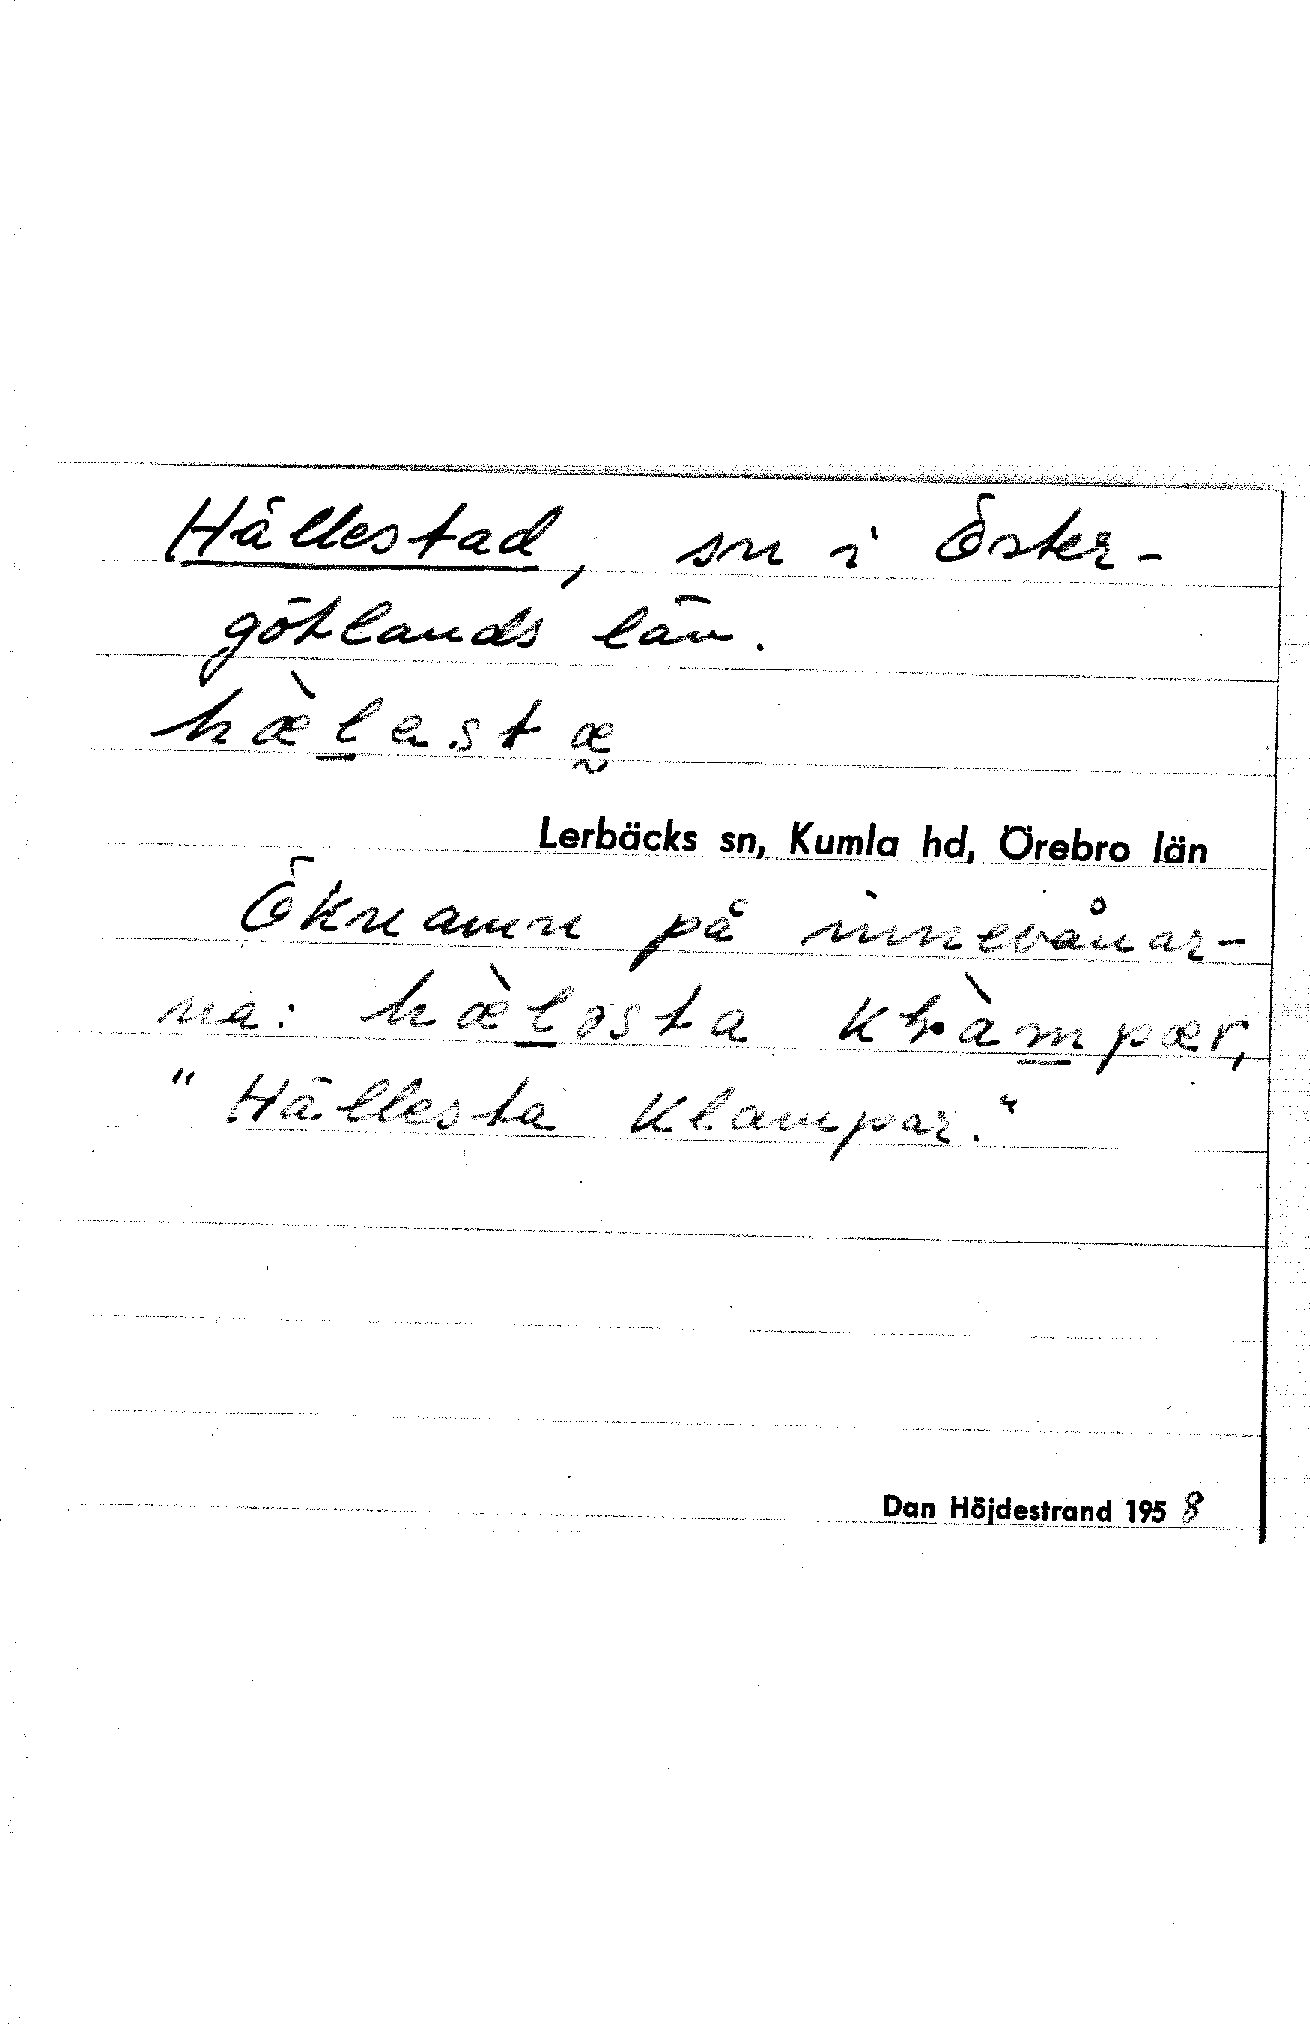 Hällestad, sn i Öster-
götlands län.
hæ̀l̲astæ̰
Lerbäcks sn, Kumla hd, Örebro län
Öknamn på innevånar-
na: hæ̀l̲əsta kɽàm̲pær,
"Hällesta klampar."
Dan Höjdestrand 1958